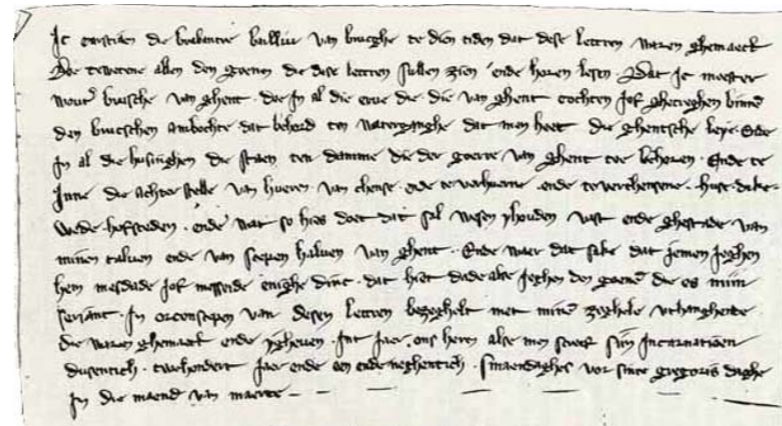 Jc carstiaen die brabantre balliu van brueghe te dien tiden dat dese lettren waren ghemaect
Doe te wetene allen den goenen die dese lettren sullen zien ende horen lesen. Dat ic meester
wout' buusche van ghent. doe in al die erve die die van ghent cochten jof ghecreghen binnen
den bruchschen ambochte dat behord ten waterganghe dat men heet die ghentsche leye. Ende
in al die husinghen die staen ten damme die der goerre van ghent toe behoren. Ende te
inne die achterstelle van hueren van chense. ende te verhuerne ende te verchensene. huse. dike
wede. hofsteden. ende wat so hies doet dat sal wesen ghouden vast ende ghestade van
minen halven ende van scepen halven van ghent. Ende waer dat sake dat jemen jeghen
hem mesdade jof messeide enighe dinc. dat hiet dade alse jeghen den goene die es miin
seriant. In orconscepen van desen lettren beseghelt met mine zeghele uthanghende
die waren ghemaect ende ghegheven. Int jaer ons heren alse men screef siin incarnatioen
dusentich. twehondert jaer ende een ende neghentich. smaendaghes vor sinte gregoris daghe
in die maend van maerte